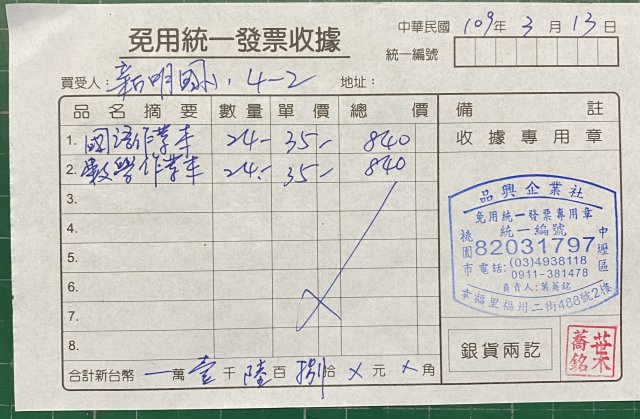 免用統一發票收據
中華民國 109 年 3 月 13 日
統一編號
買受人： 新明國小 4-2 地址：
品名摘要 數量 單價 總價 備註
1. 國語作業本 24- 35- 840 收據專用章
2. 數學作業本 24- 35- 840
3.
4.
5.
6.
7.
8.
品興企業社
免用統一發票專用章
統一編號
桃園市 82031797 中壢區
電話:(03)4938118
0911-381478
負責人:葉蕎銘
幸福里福州二街488號2樓
銀貨兩訖
葉蕎銘
合計新台幣 一 萬 壹 千 陸 百 捌 拾 x 元 x 角